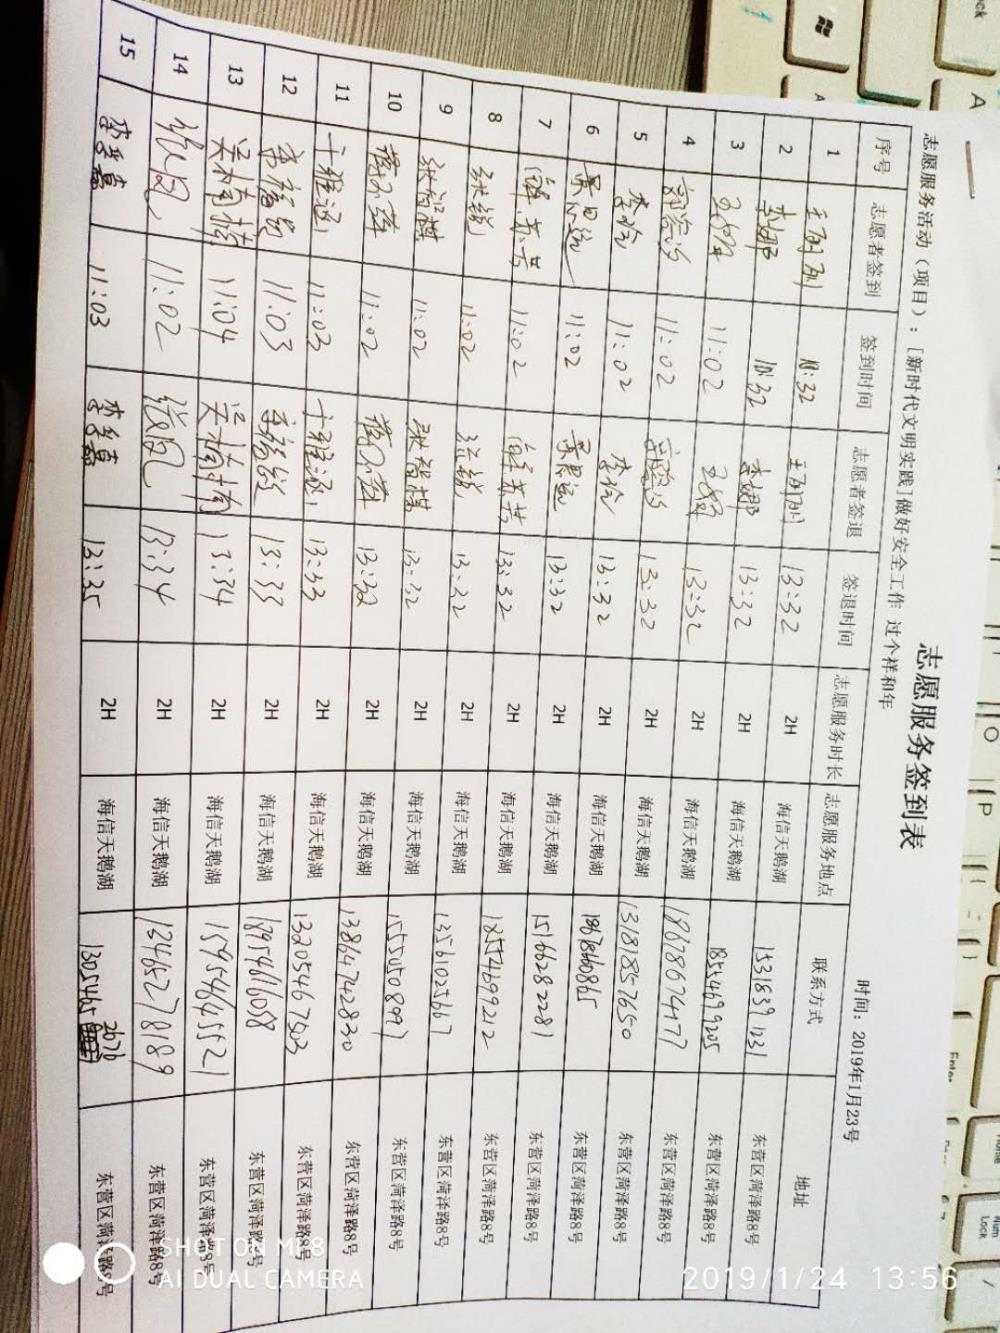 志愿服务签到表
时间：2019年1月23号
志愿服务活动（项目）：[新时代文明实践]做好安全工作 过个祥和年
序号 志愿者签到 签到时间 志愿者签退 签退时间 志愿服务时长 志愿服务地点 联系方式 地址
1 10:32 13:32 2H 海信天鹅湖 15318391231 东营区菏泽路8号
2 李娜 10:32 李娜 13:32 2H 海信天鹅湖 18554699205 东营区菏泽路8号
3 11:02 13:32 2H 海信天鹅湖 18678674177 东营区菏泽路8号
4 11:02 13:32 2H 海信天鹅湖 13181857650 东营区菏泽路8号
5 11:02 13:32 2H 海信天鹅湖 18678660865 东营区菏泽路8号
6 景思远 11:02 景思远 13:32 2H 海信天鹅湖 15166282281 东营区菏泽路8号
7 11:02 13:32 2H 海信天鹅湖 18554699212 东营区菏泽路8号
8 张锐 11:02 张锐 13:32 2H 海信天鹅湖 13561025667 东营区菏泽路8号
9 张智祺 11:02 张智祺 13:32 2H 海信天鹅湖 15550508997 东营区菏泽路8号
10 11:02 13:32 2H 海信天鹅湖 13864742830 东营区菏泽路8号
11 于雅涵 11:03 于雅涵 13:33 2H 海信天鹅湖 13205467503 东营区菏泽路8号
12 11:03 13:33 2H 海信天鹅湖 18954616058 东营区菏泽路8号
13 吴楠楠 11:04 吴楠楠 13:34 2H 海信天鹅湖 15954645521 东营区菏泽路8号
14 张凤 11:02 张凤 13:34 2H 海信天鹅湖 13465278189 东营区菏泽路8号
15 11:03 13:35 2H 海信天鹅湖 1305465 2676 东营区菏泽路8号
SHOT ON MI 8
AI DUAL CAMERA
2019/1/24 13:56